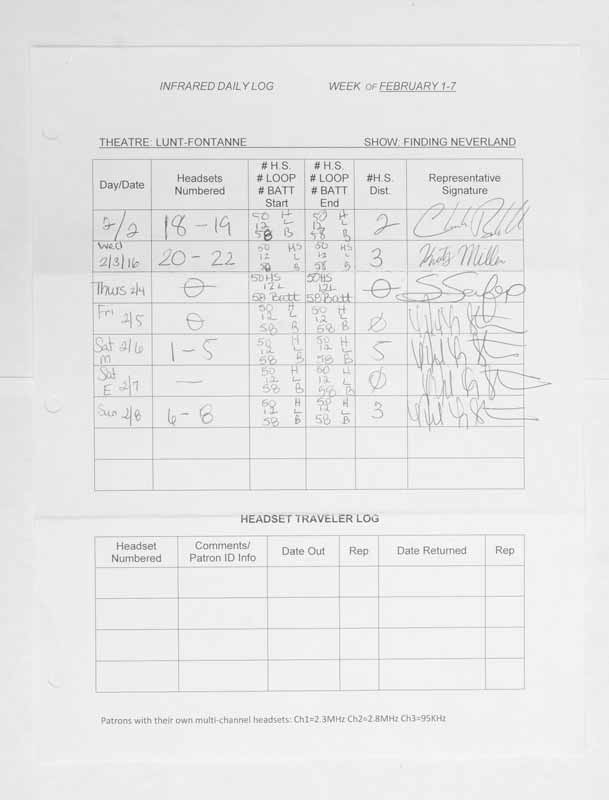 INFRARED DAILY LOG WEEK OF FEBRUARY 1-7
THEATRE: LUNT-FONTANNE SHOW: FINDING NEVERLAND
Day/Date Headsets Numbered # H.S. # LOOP # BATT Start # H.S. # LOOP # BATT End #H.S. Dist. Representative Signature
2/2 18-19 50 H 12 L 58 B 50 H 12 L 58 B 2
Wed 2/3/16 20-22 50 HS 12 L 58 B 50 HS 12 L 58 B 3 Miller
Thurs 2/4 ⦵ 50 HS 12L 58 Batt 50HS 12L 58 Batt ⦵
Fri 2/5 ⦵ 50 H 12 L 58 B 50 H 12 L 58 B Ø
Sat 2/6 M 1-5 50 H 12 L 58 B 50 H 12 L 58 B 5
Sat E 2/7 — 50 H 12 L 58 B 50 H 12 L 58 B Ø
Sun 2/8 6-8 50 H 12 L 58 B 50 H 12 L 58 B 3
HEADSET TRAVELER LOG
Headset Numbered Comments/ Patron ID Info Date Out Rep Date Returned Rep
Patrons with their own multi-channel headsets: Ch1=2.3MHz Ch2=2.8MHz Ch3=95KHz